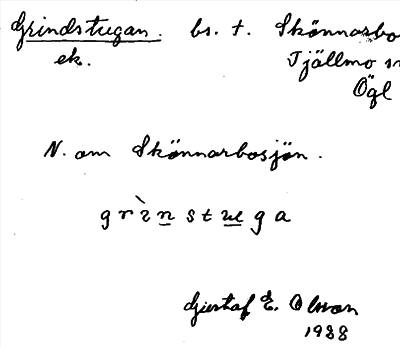 Grindstugan. bs. t. Skönnarbo
ek. Tjällmo sn
Ögl
N. om Skönnarbosjön.
grìnstuga
Gustaf E. Olsson
1928